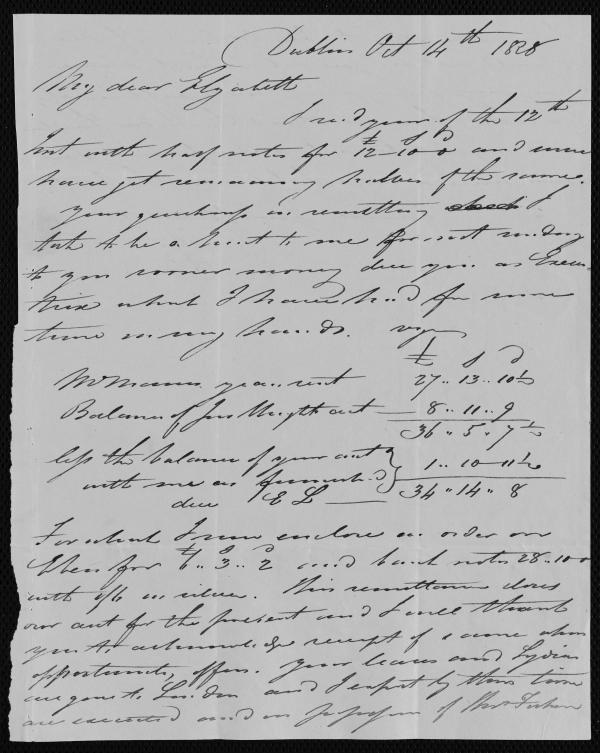 Dublin Oct 14th 1828
My dear Elyabeth
I rec.d yours of the 12th
Inst with half notes for £12-10-0 and now
have got remaining halves of the same.
Your in remitting I
take to be a hint to me for not sending
it you sooner money due you as Execu-
trix what I have had for some
time in my hands. viz
£ s d
McManus years rent 27..13..10½
Balance of Jas Wright act — 8..11..9
36"5"7½
less the balance of your act
with me as furnished } 1..10-11½
due E L — 34"14"8
For what I now enclose an order on
Eben for £6..3..2 and bank notes 28.10.0
with 1/6 in silver. This remittance closes
our act for the present and I will thank
you to acknowledge receipt of same when
opportunity offers. Your leases and Lydias
are gone to London and I expect by this time
are executed and in possession of Thos